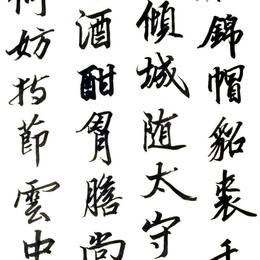 錦帽貂裘千
傾城随太守
酒酣胷膽尚
何妨持節雲中